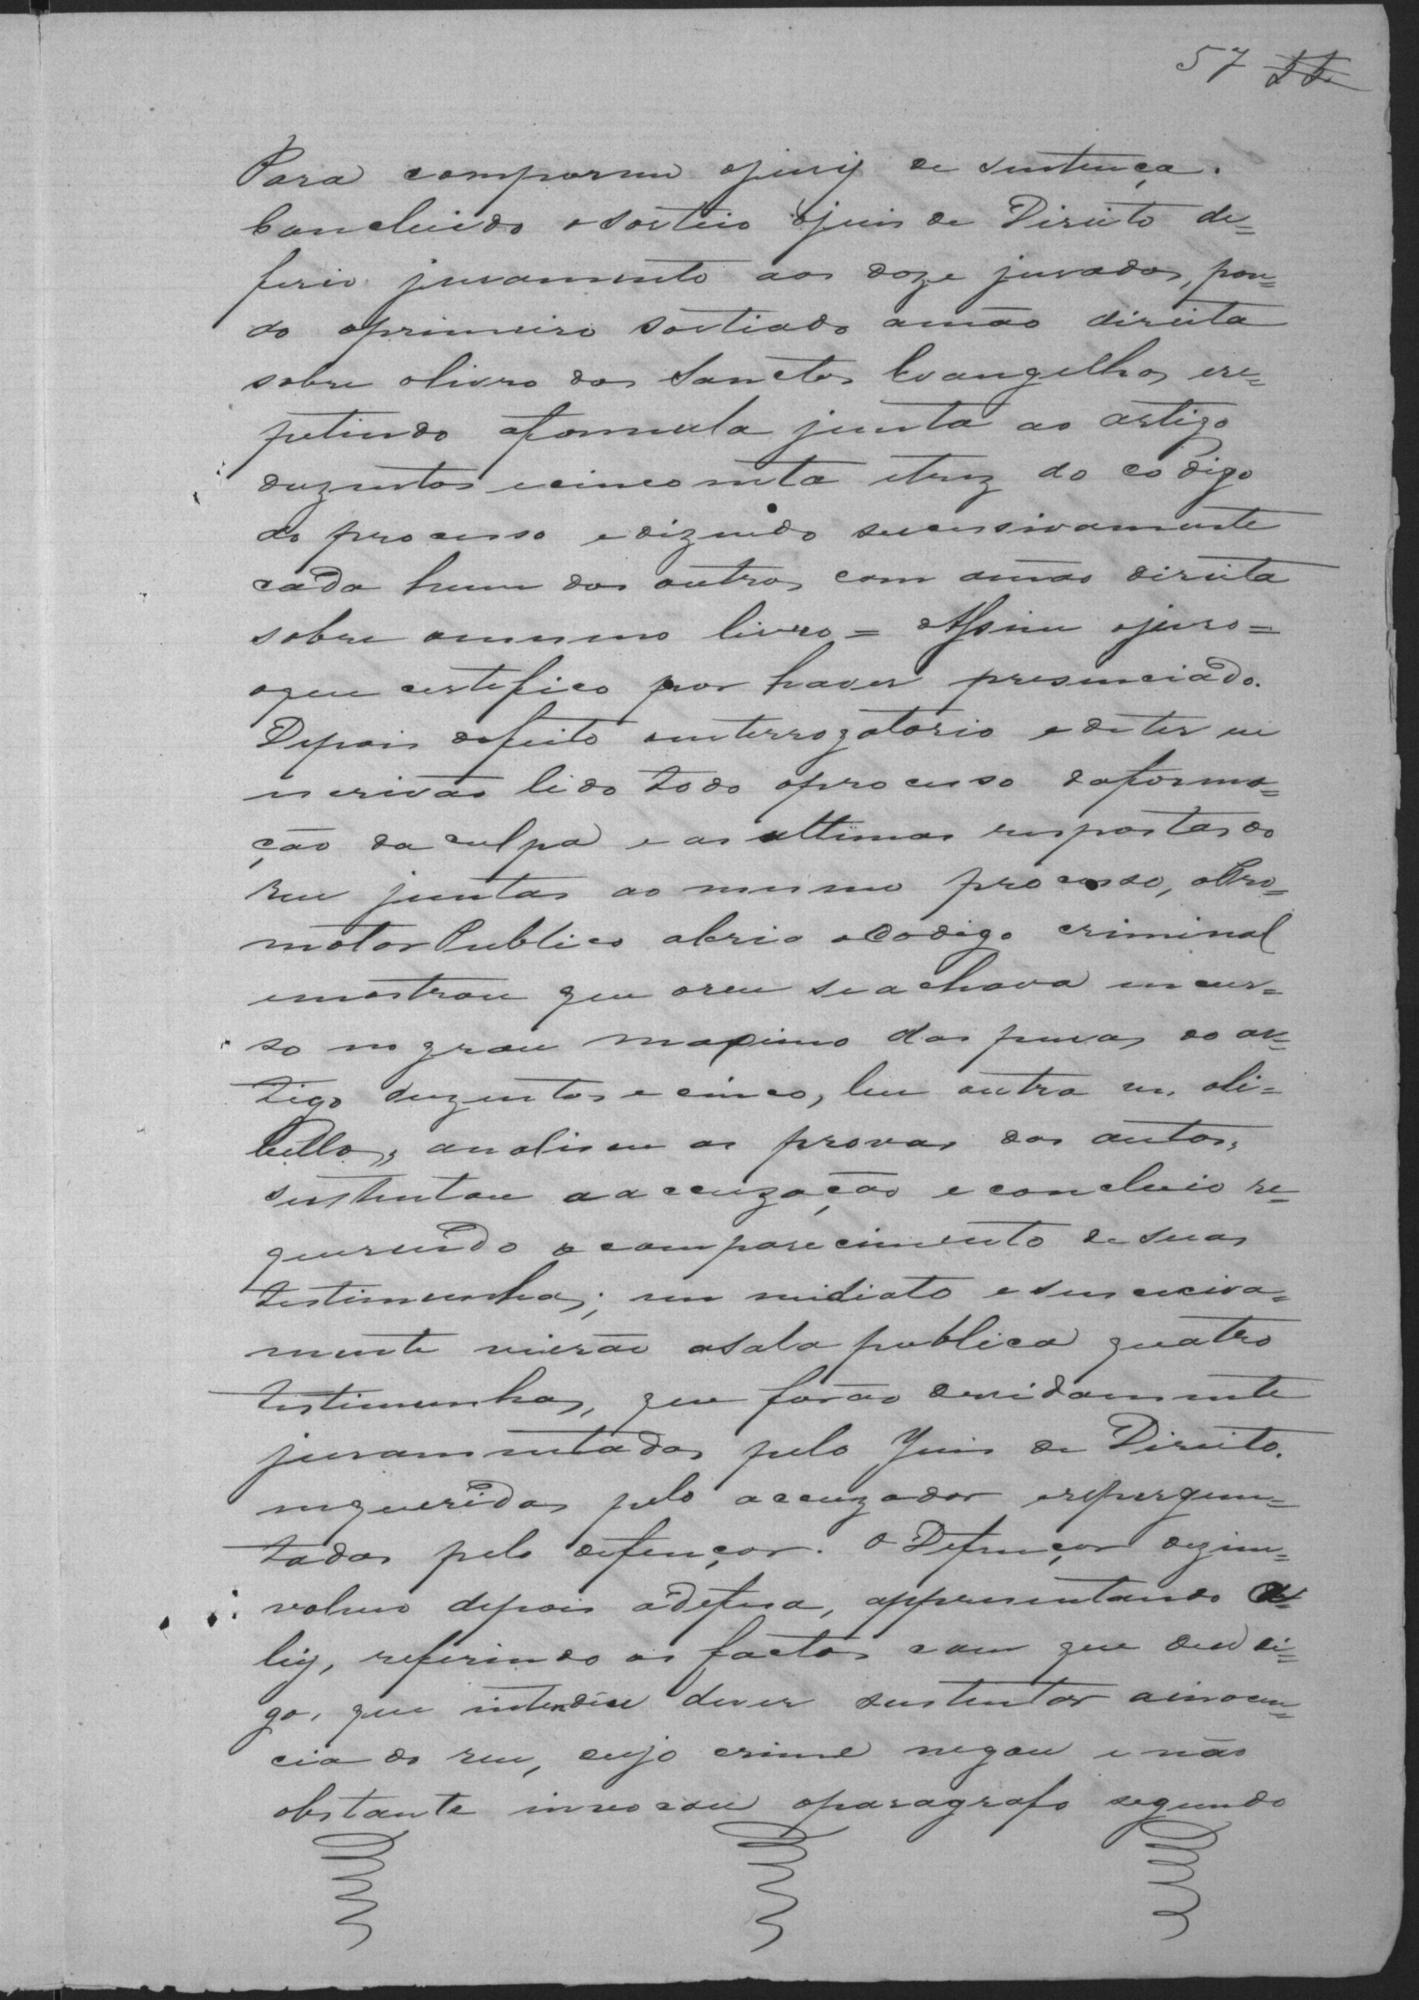 57 55
Para comporem ojury de sentença.
Concluido osorteio ojuis de Direito de=
ferio juramento aos doze jurados, pon=
do oprimeiro sortiado amão direita
sobre olivro dos Sanctos Evangelhos, ere=
petindo aformula junta ao artigo
duzentos ecincoenta etrez do codigo
do processo edizendo sucessivamente
cada hum dos outros com amão direita
sobre omesmo livro = Assim ojuro =
oque certefico por haver presenciado.
Depois defeito ointerrogatorio edeter eu
escrivão lido todo oprocesso daforma=
ção da culpa e as ultimas respostas do
reu juntas ao mesmo processo, oPro=
motor Publico abrio oCodigo criminal
emostrou que oreu seachava incur=
so no grau maximo das penas do ar=
tigo duzentos e cinco, leu outra ves oli=
bello, analisou as provas dos autos,
sustentou aaccuzação econcluio re=
querendo ocomparecimento desuas
testimunhas; em midiato esusceciva=
mente vierão asala publica quatro
testimunhas, que forão devidamente
juramentadas pelo Juis de Direito.
inqueridas pelo accuzador erepergun=
tadas pelo defençor. O Defençor dezim=
volveo depois adefesa, appresentando a
ley, referindo os factos com que deu di=
go, que intendeu dever sustentar ainocen=
cia do reu, cujo crime negou e não
obstante invocou oparagrafo segundo